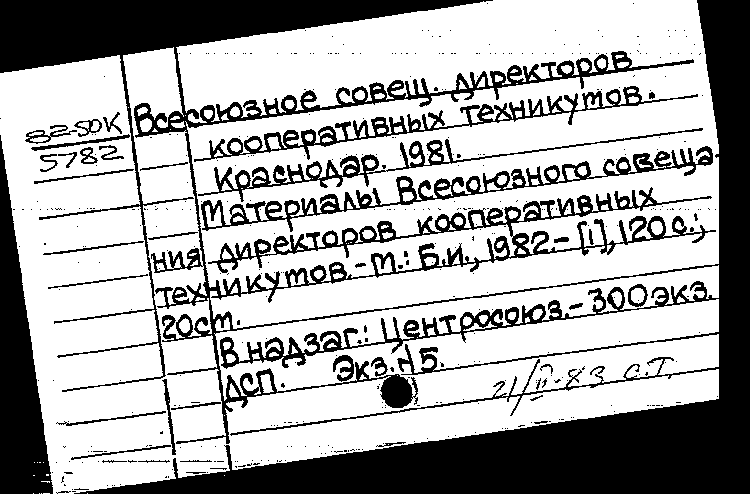 82-50К
5782
Всесоюзное совещ. директоров
кооперативных техникутов.
Краснодар. 1981.
Материалы Всесоюзного совеща-
ния директоров кооперативных
техникутов.-М.: Б.И., 1982.- [1], 120 с.;
20см.
В надзаг.: Центросоюз.- 300 экз.
ДСП. Экз. N 5.
21/II-83 С.Т.